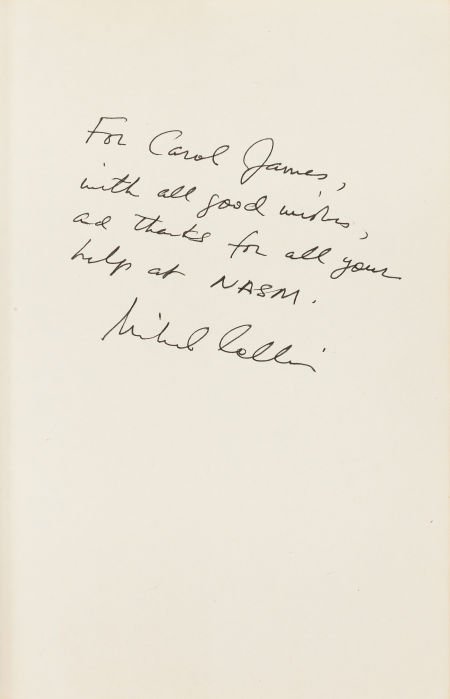 For Carol James,
with all good wishes,
and thanks for all your
help at NASM.
Michael Collins